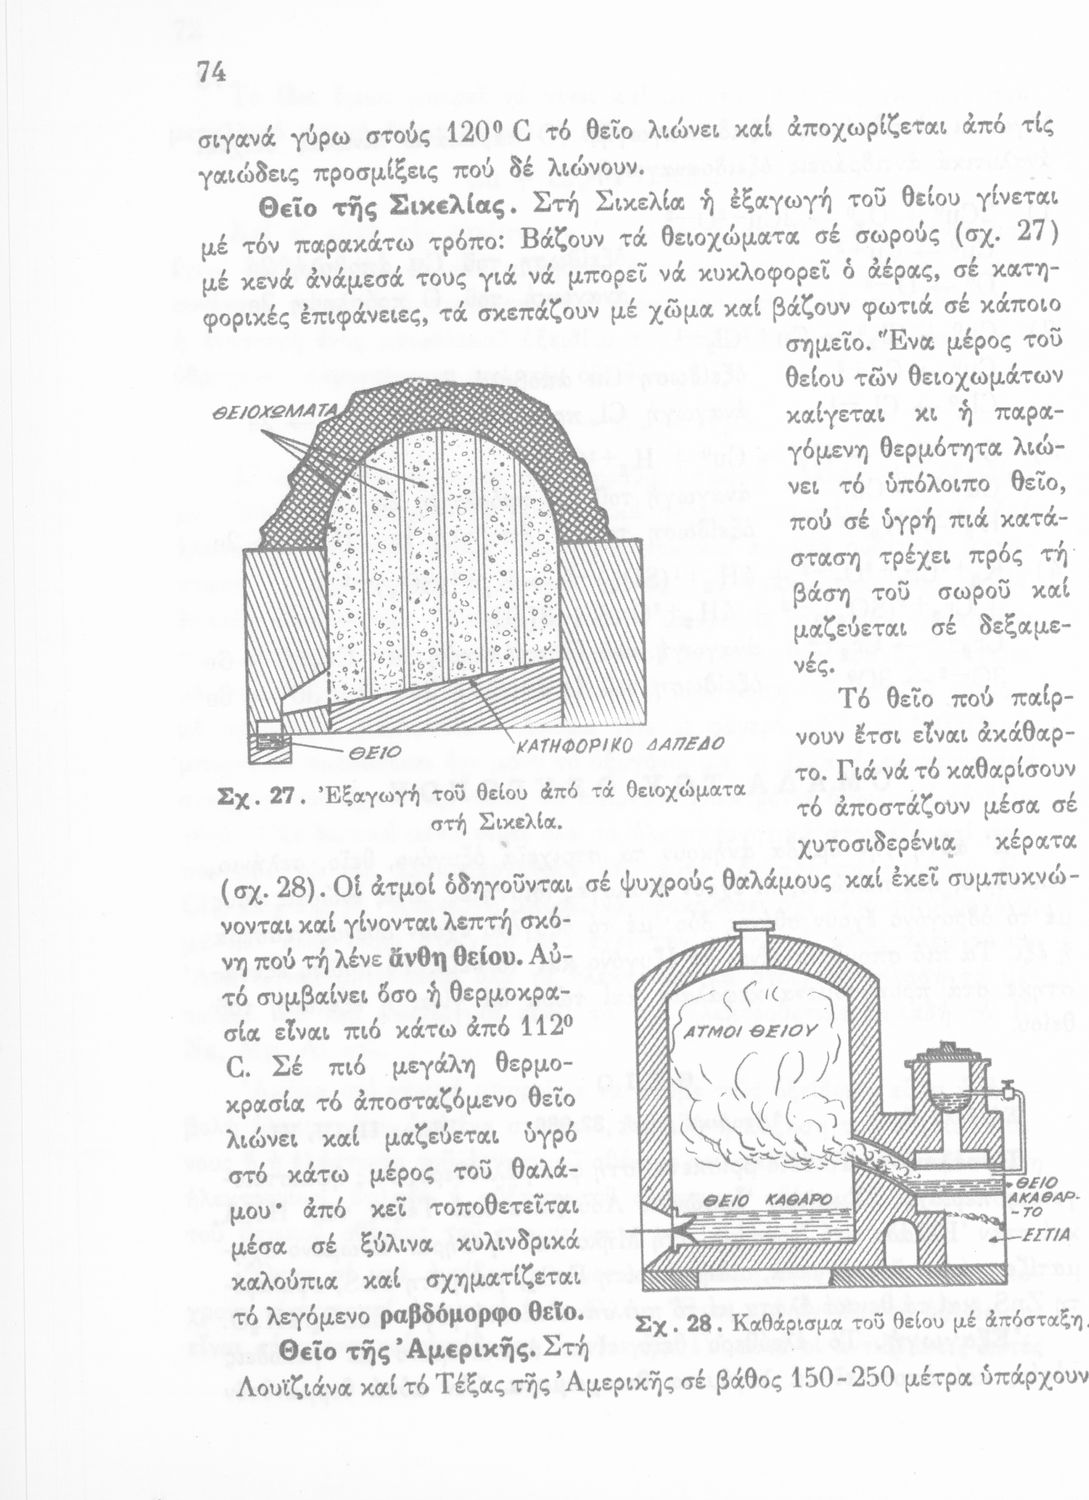 74
σιγανά γύρω στούς 120⁰ C τό θεῖο λιώνει καί ἀποχωρίζεται ἀπό τίς
γαιώδεις προσμίξεις πού δέ λιώνουν.
Θεῖο τῆς Σικελίας. Στή Σικελία ἡ ἐξαγωγή τοῦ θείου γίνεται
μέ τόν παρακάτω τρόπο: Βάζουν τά θειοχώματα σέ σωρούς (σχ. 27)
μέ κενά ἀνάμεσά τους γιά νά μπορεῖ νά κυκλοφορεῖ ὁ ἀέρας, σέ κατη-
φορικές ἐπιφάνειες, τά σκεπάζουν μέ χῶμα καί βάζουν φωτιά σέ κάποιο
σημεῖο. Ἕνα μέρος τοῦ
θείου τῶν θειοχωμάτων
καίγεται κι ἡ παρα-
γόμενη θερμότητα λιώ-
νει τό ὑπόλοιπο θεῖο,
πού σέ ὑγρή πιά κατά-
σταση τρέχει πρός τή
βάση τοῦ σωροῦ καί
μαζεύεται σέ δεξαμε-
νές.
ΘΕΙΟΧΩΜΑΤΑ
ΘΕΙΟ
ΚΑΤΗΦΟΡΙΚΟ ΔΑΠΕΔΟ
Σχ. 27. Ἐξαγωγή τοῦ θείου ἀπό τά θειοχώματα
στή Σικελία.
Τό θεῖο πού παίρ-
νουν ἔτσι εἶναι ἀκάθαρ-
το. Γιά νά τό καθαρίσουν
τό ἀποστάζουν μέσα σέ
χυτοσιδερένια κέρατα
(σχ. 28). Οἱ ἀτμοί ὁδηγοῦνται σέ ψυχρούς θαλάμους καί ἐκεῖ συμπυκνώ-
νονται καί γίνονται λεπτή σκό-
νη πού τή λένε ἄνθη θείου. Αὐ-
τό συμβαίνει ὅσο ἡ θερμοκρα-
σία εἶναι πιό κάτω ἀπό 112⁰
C. Σέ πιό μεγάλη θερμο-
κρασία τό ἀποσταζόμενο θεῖο
λιώνει καί μαζεύεται ὑγρό
στό κάτω μέρος τοῦ θαλά-
μου· ἀπό κεῖ τοποθετεῖται
μέσα σέ ξύλινα κυλινδρικά
καλούπια καί σχηματίζεται
τό λεγόμενο ραβδόμορφο θεῖο.
ΑΤΜΟΙ ΘΕΙΟΥ
ΘΕΙΟ ΚΑΘΑΡΟ
ΘΕΙΟ
ΑΚΑΘΑΡ-
-ΤΟ
ΕΣΤΙΑ
Σχ. 28. Καθάρισμα τοῦ θείου μέ ἀπόσταξη.
Θεῖο τῆς Ἀμερικῆς. Στή
Λουϊζιάνα καί τό Τέξας τῆς Ἀμερικῆς σέ βάθος 150-250 μέτρα ὑπάρχουν